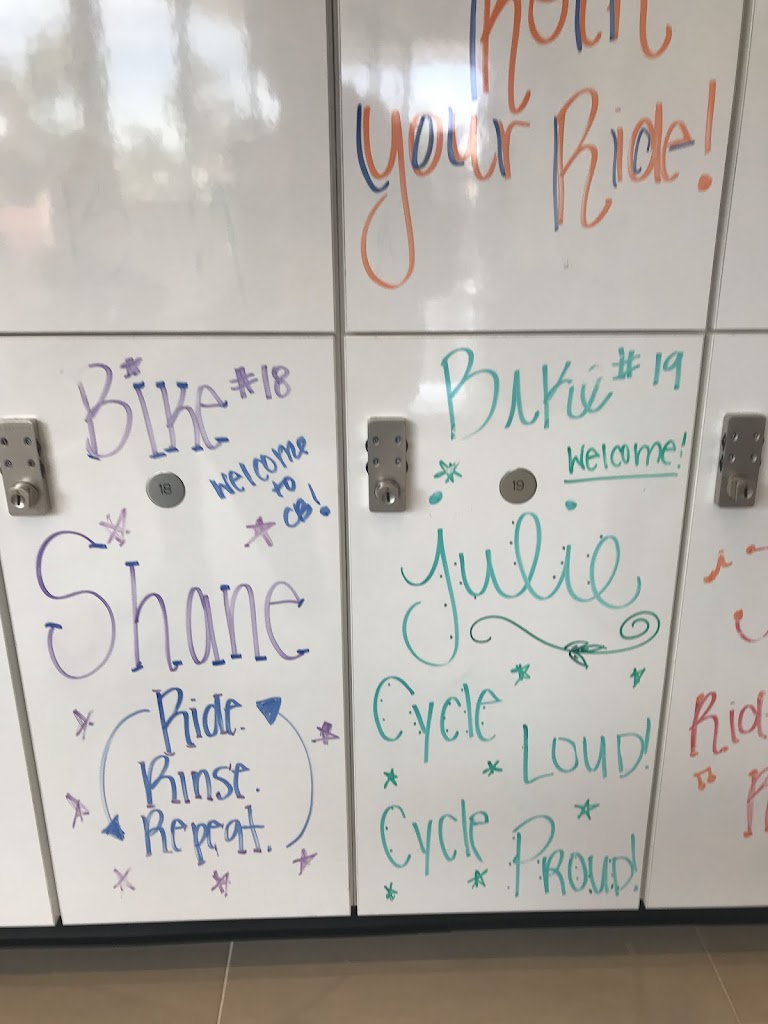 Rock
your Ride!
Bike #18
Welcome
to
CB!
18
Shane
Ride.
Rinse.
Repeat.
Bike #19
Welcome!
19
Julie
Cycle
LOUD!
Cycle
PROUD!